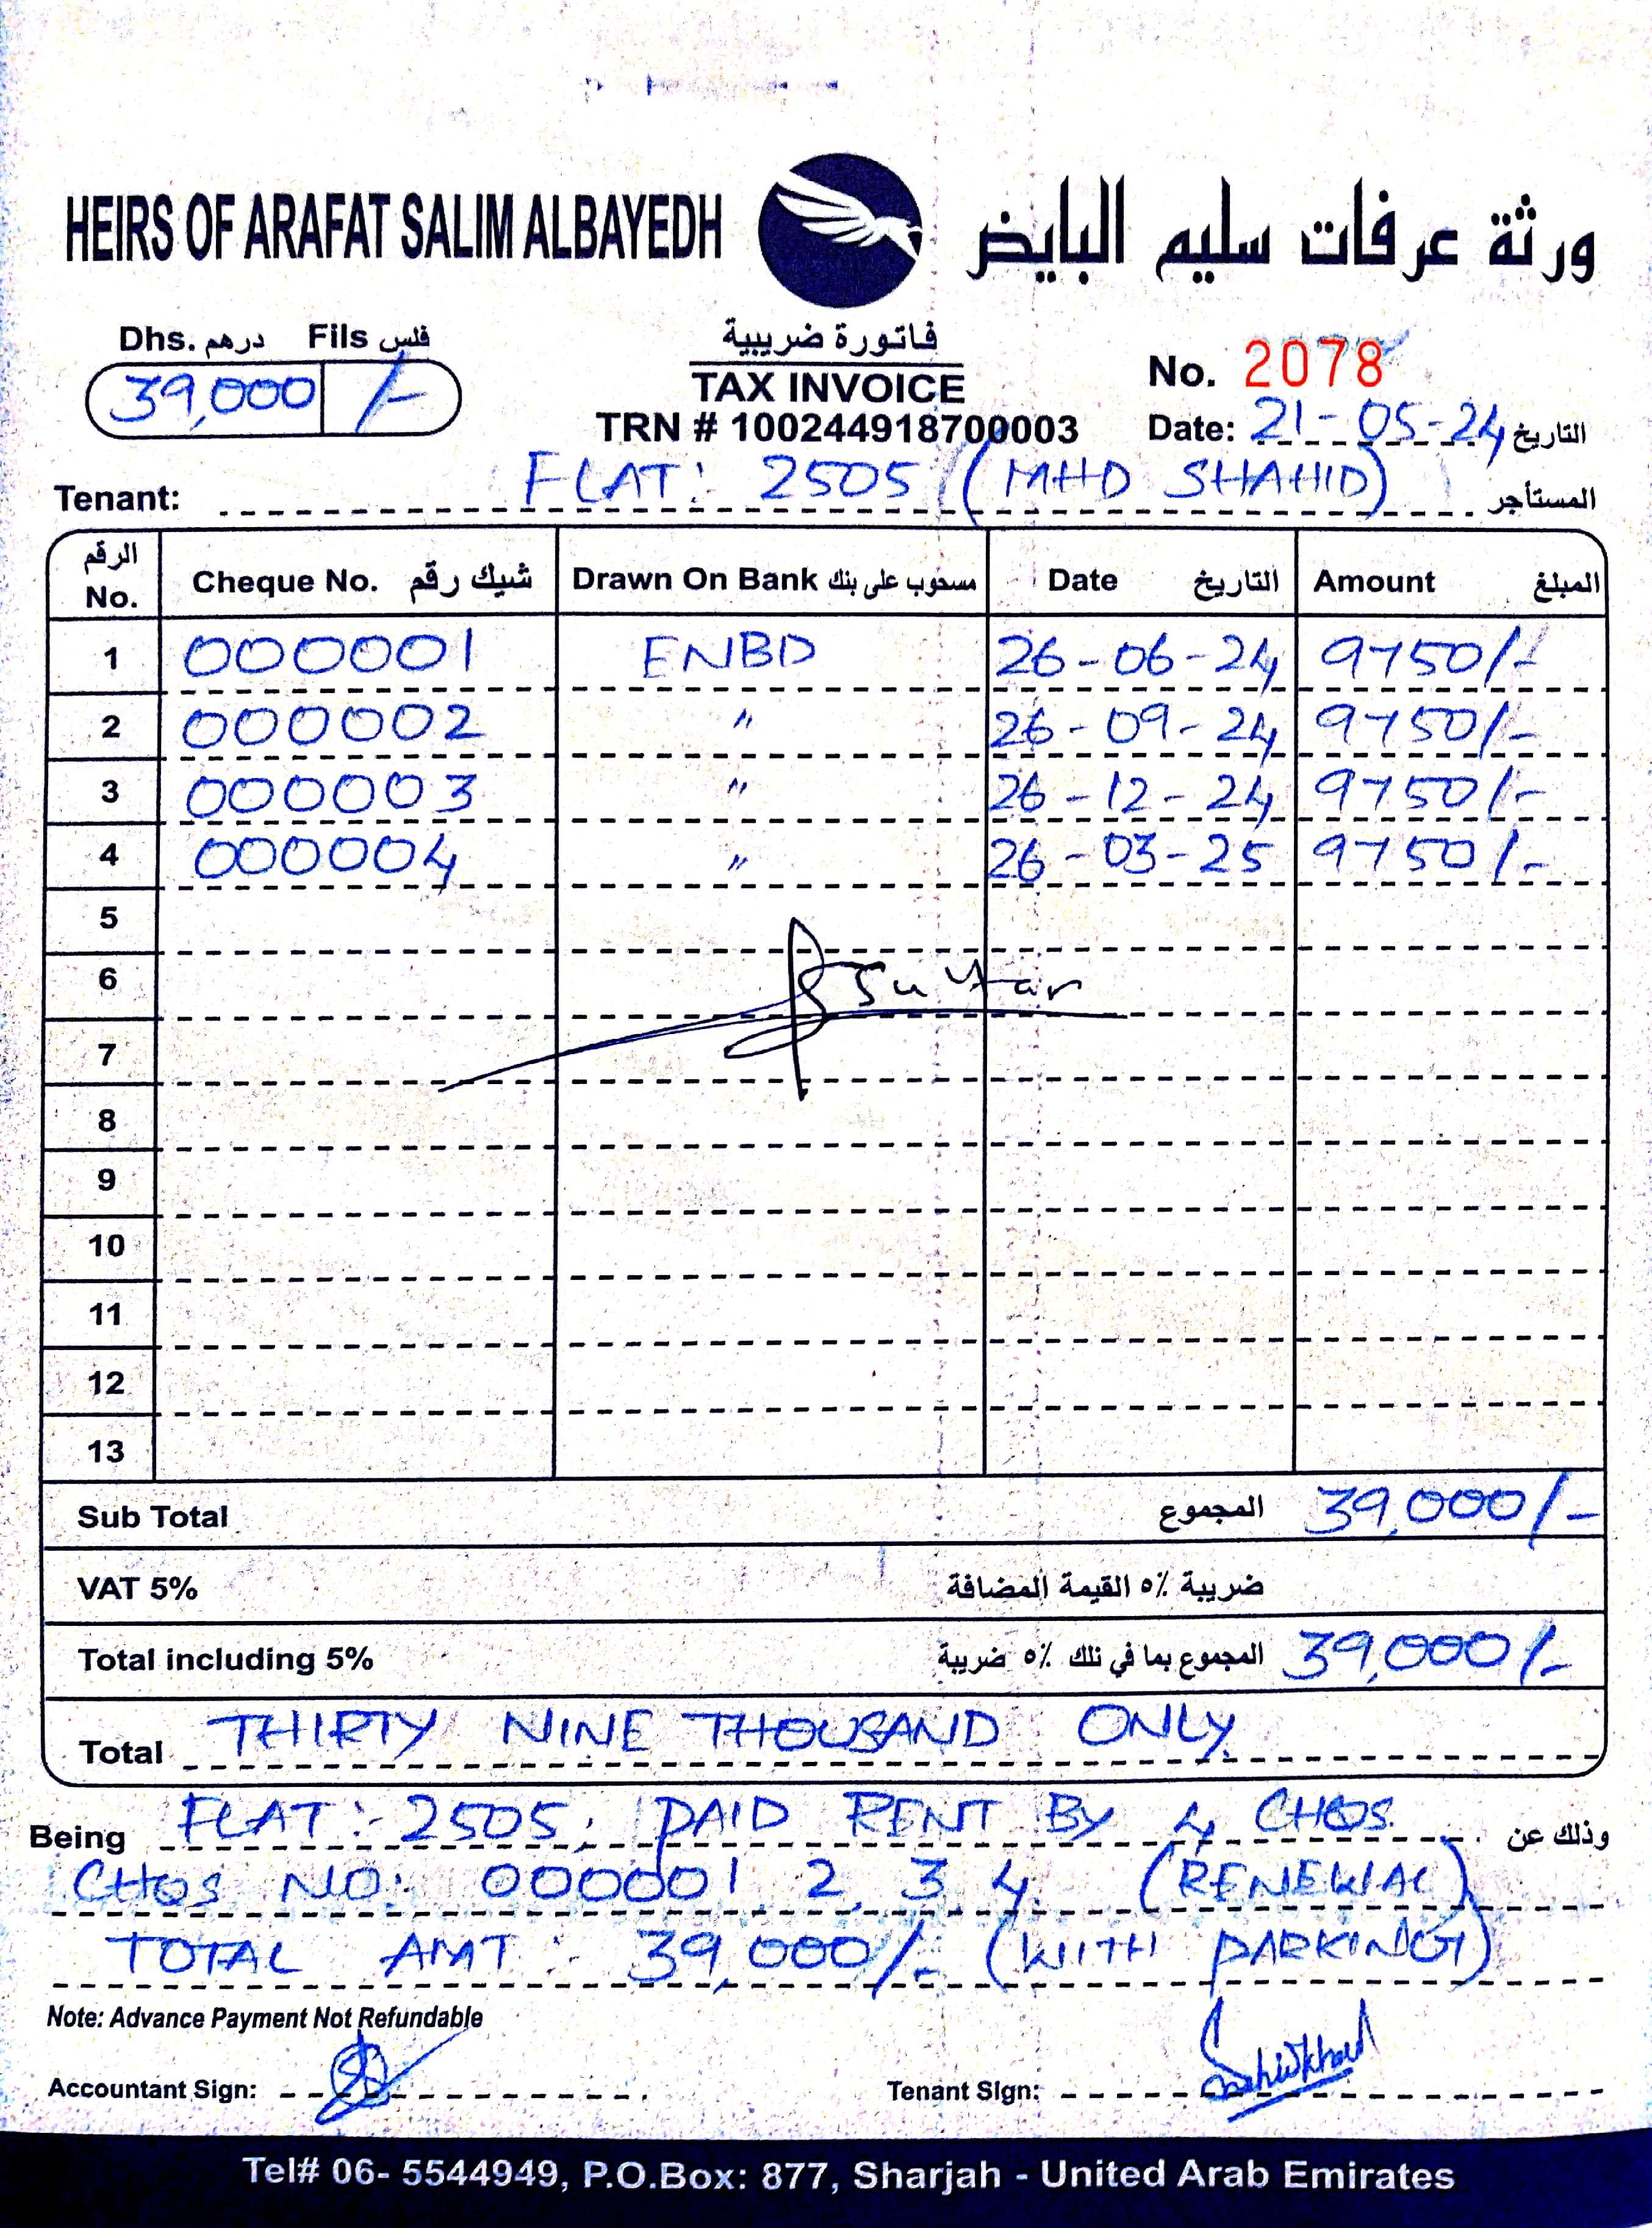 HEIRS OF ARAFAT SALIM ALBAYEDH ورثة عرفات سليم البايض
Dhs. درهم Fils فلس
39,000 /-
فاتورة ضريبية
TAX INVOICE
TRN # 100244918700003
No. 2078
Date: 21-05-24 التاريخ
Tenant: FLAT: 2505 (MHD SHAHID) المستأجر
الرقم No. Cheque No. شيك رقم Drawn On Bank مسحوب على بنك Date التاريخ Amount المبلغ
1 000001 ENBD 26-06-24 9750/-
2 000002 " 26-09-24 9750/-
3 000003 " 26-12-24 9750/-
4 000004 " 26-03-25 9750/-
5
6
7
8
9
10
11
12
13
Sub Total المجموع 39,000/-
VAT 5% ضريبة ٥٪ القيمة المضافة
Total including 5% المجموع بما في ذلك ٥٪ ضريبة 39,000/-
Total THIRTY NINE THOUSAND ONLY
Being FLAT:- 2505, PAID RENT BY 4 CHQS. وذلك عن
CHQS NO: 000001, 2, 3, 4. (RENEWAL)
TOTAL AMT: 39,000/- (WITH PARKING)
Note: Advance Payment Not Refundable
Accountant Sign: Tenant Sign:
Tel# 06- 5544949, P.O.Box: 877, Sharjah - United Arab Emirates